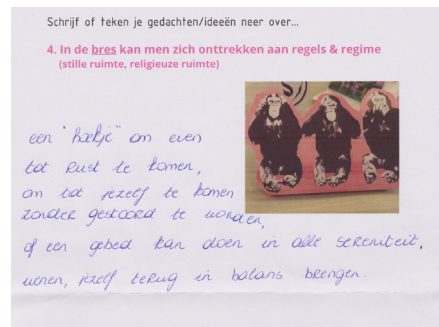 Schrijf of teken je gedachten/ideeën neer over...
4. In de bres kan men zich onttrekken aan regels & regime
(stille ruimte, religieuze ruimte)
een "hoekje" om even
tot rust te komen,
om tot jezelf te komen
zonder gestoord te worden,
of een gebed kan doen in alle sereniteit,
wenen, jezelf terug in balans brengen.